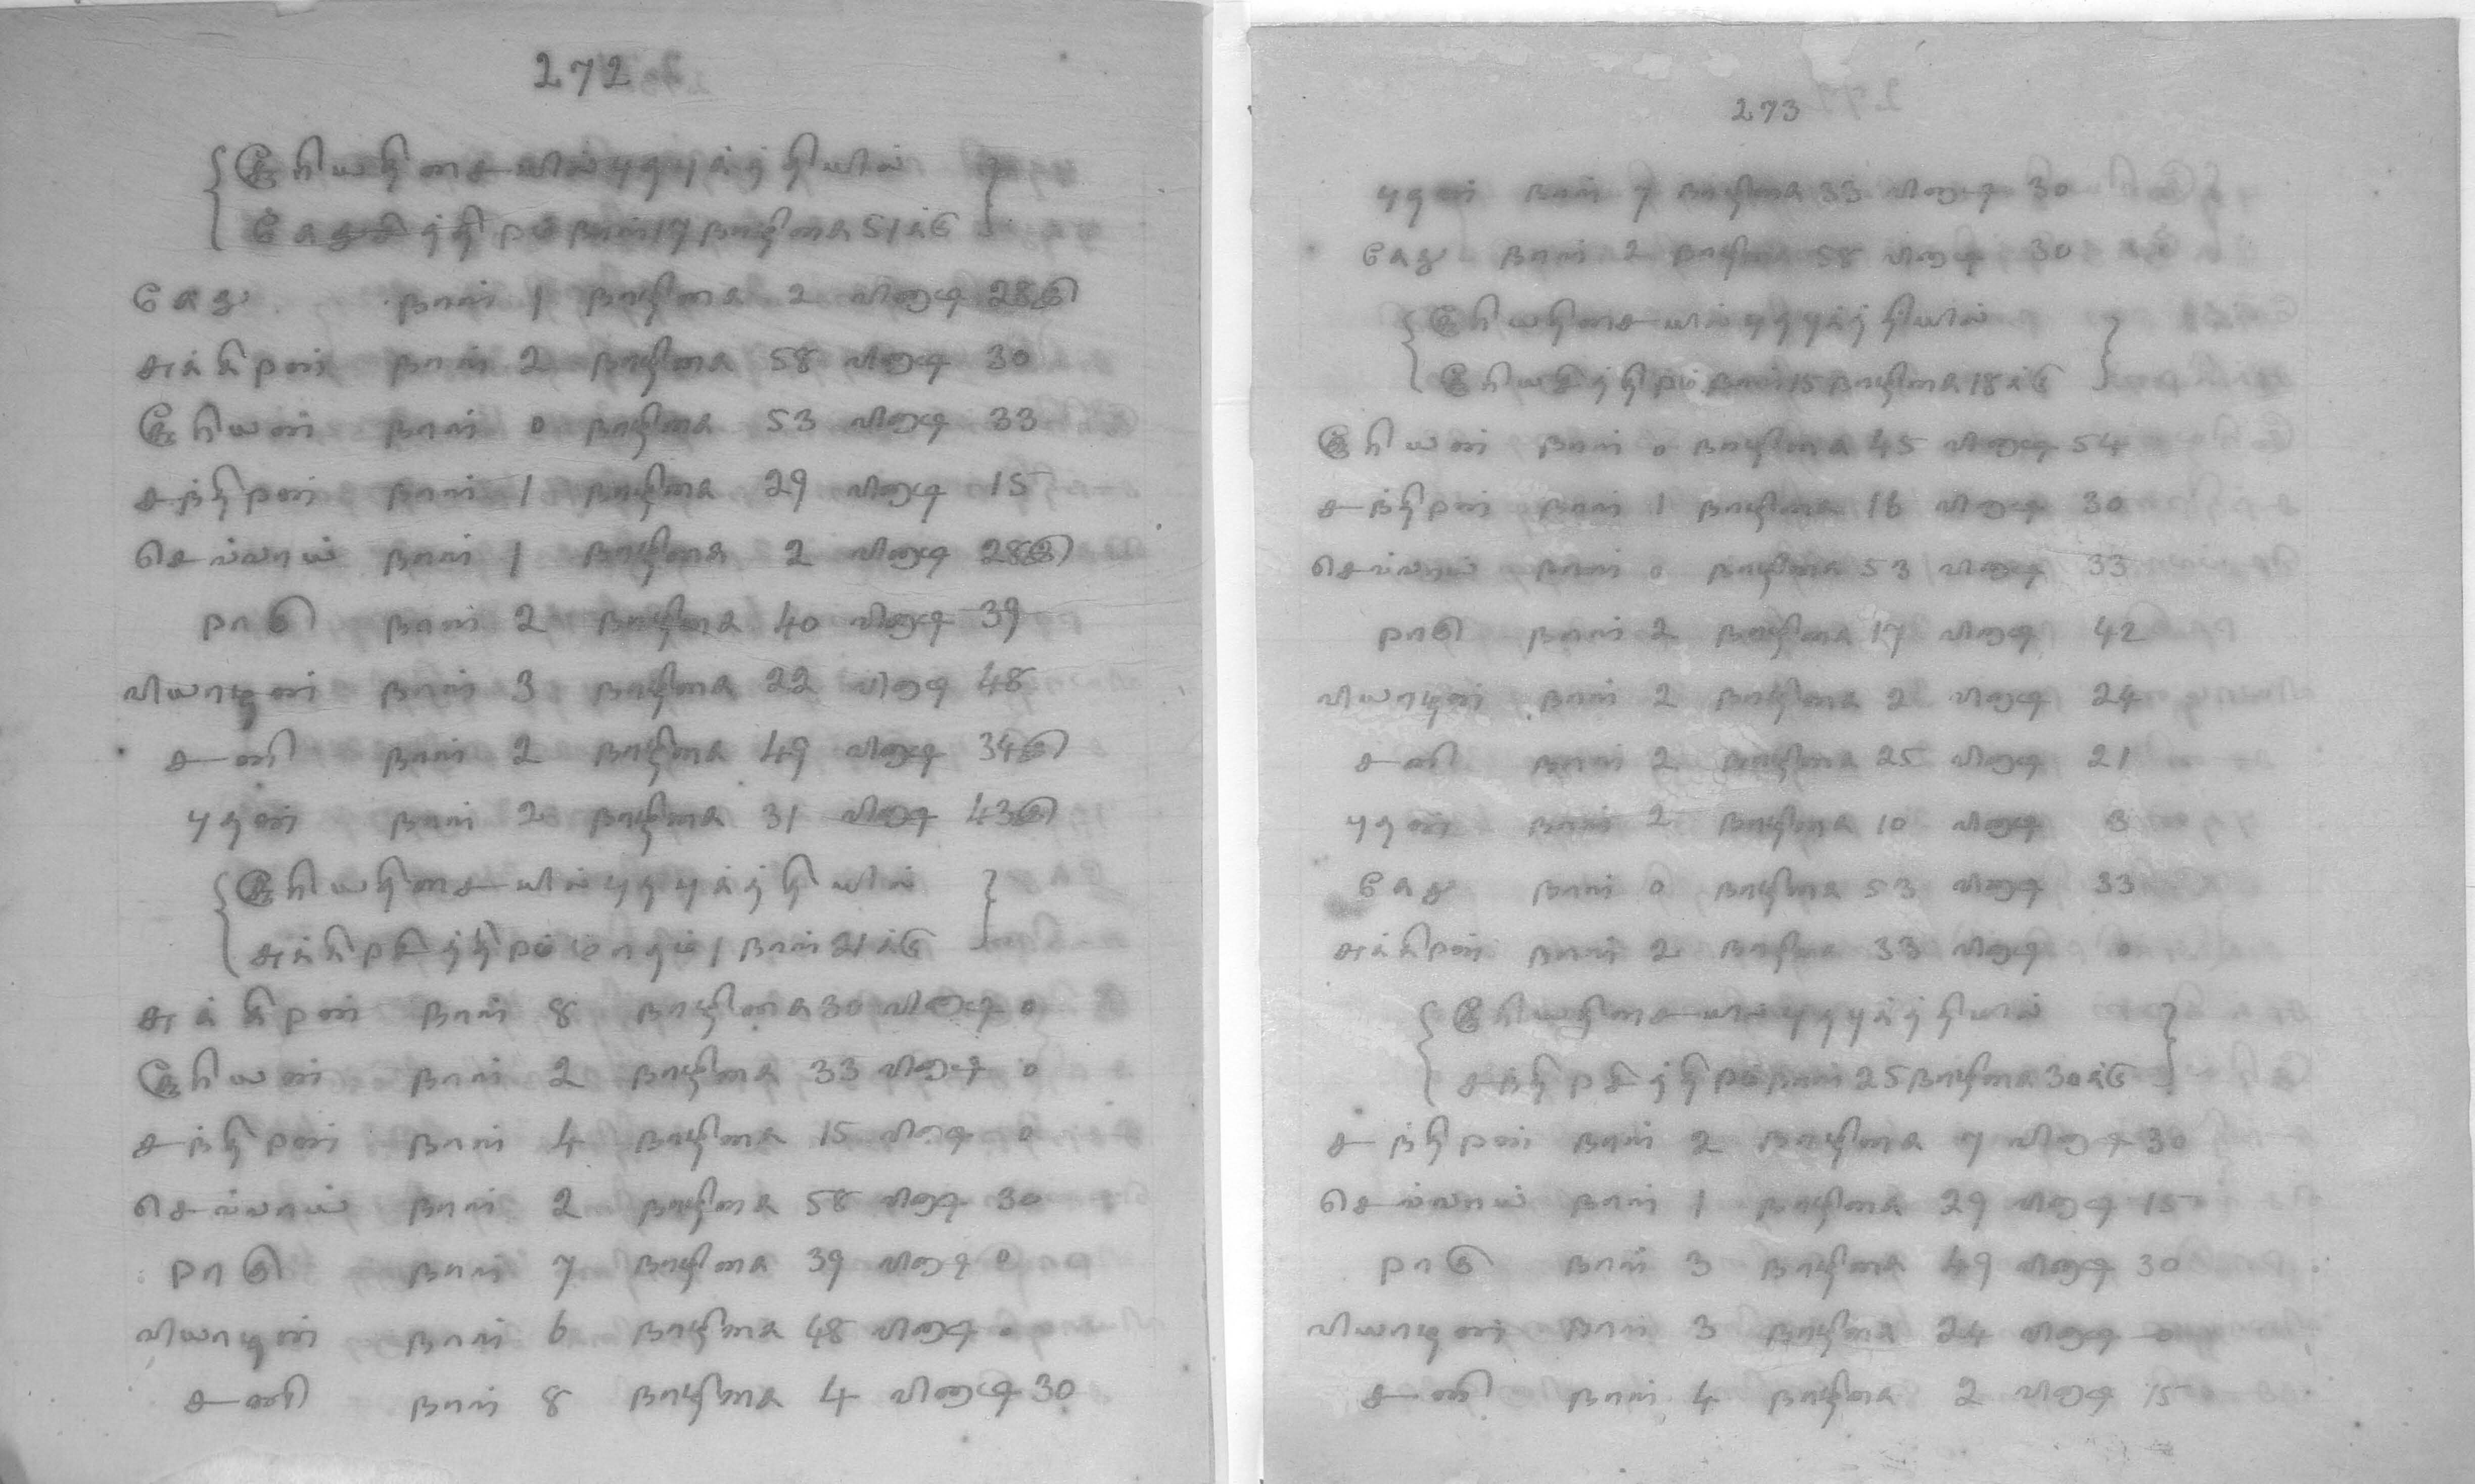 272
சூரியதிசையில்புதபுக்த்தியில்
கேதுசூத்திரம் நாள்17 நாழிகை51க்கு
கேது நாள் 1 நாழிகை 2 வினாடி 28½
சுக்கிரன் நாள் 2 நாழிகை 58 வினாடி 30
சூரியன் நாள் 0 நாழிகை 53 வினாடி 33
சந்திரன் நாள் 1 நாழிகை 29 வினாடி 15
செவ்வாய் நாள் 1 நாழிகை 2 வினாடி 28½
ராகு நாள் 2 நாழிகை 40 வினாடி 39
வியாழன் நாள் 3 நாழிகை 22 வினாடி 48
சனி நாள் 2 நாழிகை 49 வினாடி 34½
புதன் நாள் 2 நாழிகை 31 வினாடி 43½
சூரியதிசையில்புதபுக்த்தியில்
சுக்கிரசூத்திரம் மாதம் 1 நாள் 21க்கு
சுக்கிரன் நாள் 8 நாழிகை 30 வினாடி 0
சூரியன் நாள் 2 நாழிகை 33 வினாடி 0
சந்திரன் நாள் 4 நாழிகை 15 வினாடி 0
செவ்வாய் நாள் 2 நாழிகை 58 வினாடி 30
ராகு நாள் 7 நாழிகை 39 வினாடி 0
வியாழன் நாள் 6 நாழிகை 48 வினாடி 0
சனி நாள் 8 நாழிகை 4 வினாடி 30
273
புதன் நாள் 7 நாழிகை 33 வினாடி 30
கேது நாள் 2 நாழிகை 58 வினாடி 30
சூரியதிசையில்புதபுக்த்தியில்
சூரியசூத்திரம் நாள்15 நாழிகை18க்கு
சூரியன் நாள் 0 நாழிகை 45 வினாடி 54
சந்திரன் நாள் 1 நாழிகை 16 வினாடி 30
செவ்வாய் நாள் 0 நாழிகை 53 வினாடி 33
ராகு நாள் 2 நாழிகை 17 வினாடி 42
வியாழன் நாள் 2 நாழிகை 2 வினாடி 24
சனி நாள் 2 நாழிகை 25 வினாடி 21
புதன் நாள் 2 நாழிகை 10 வினாடி 3
கேது நாள் 0 நாழிகை 53 வினாடி 33
சுக்கிரன் நாள் 2 நாழிகை 33 வினாடி 0
சூரியதிசையில்புதபுக்த்தியில்
சந்திரசூத்திரம் நாள் 25 நாழிகை 30க்கு
சந்திரன் நாள் 2 நாழிகை 7 வினாடி 30
செவ்வாய் நாள் 1 நாழிகை 29 வினாடி 15
ராகு நாள் 3 நாழிகை 49 வினாடி 30
வியாழன் நாள் 3 நாழிகை 24 வினாடி 0
சனி நாள் 4 நாழிகை 2 வினாடி 15